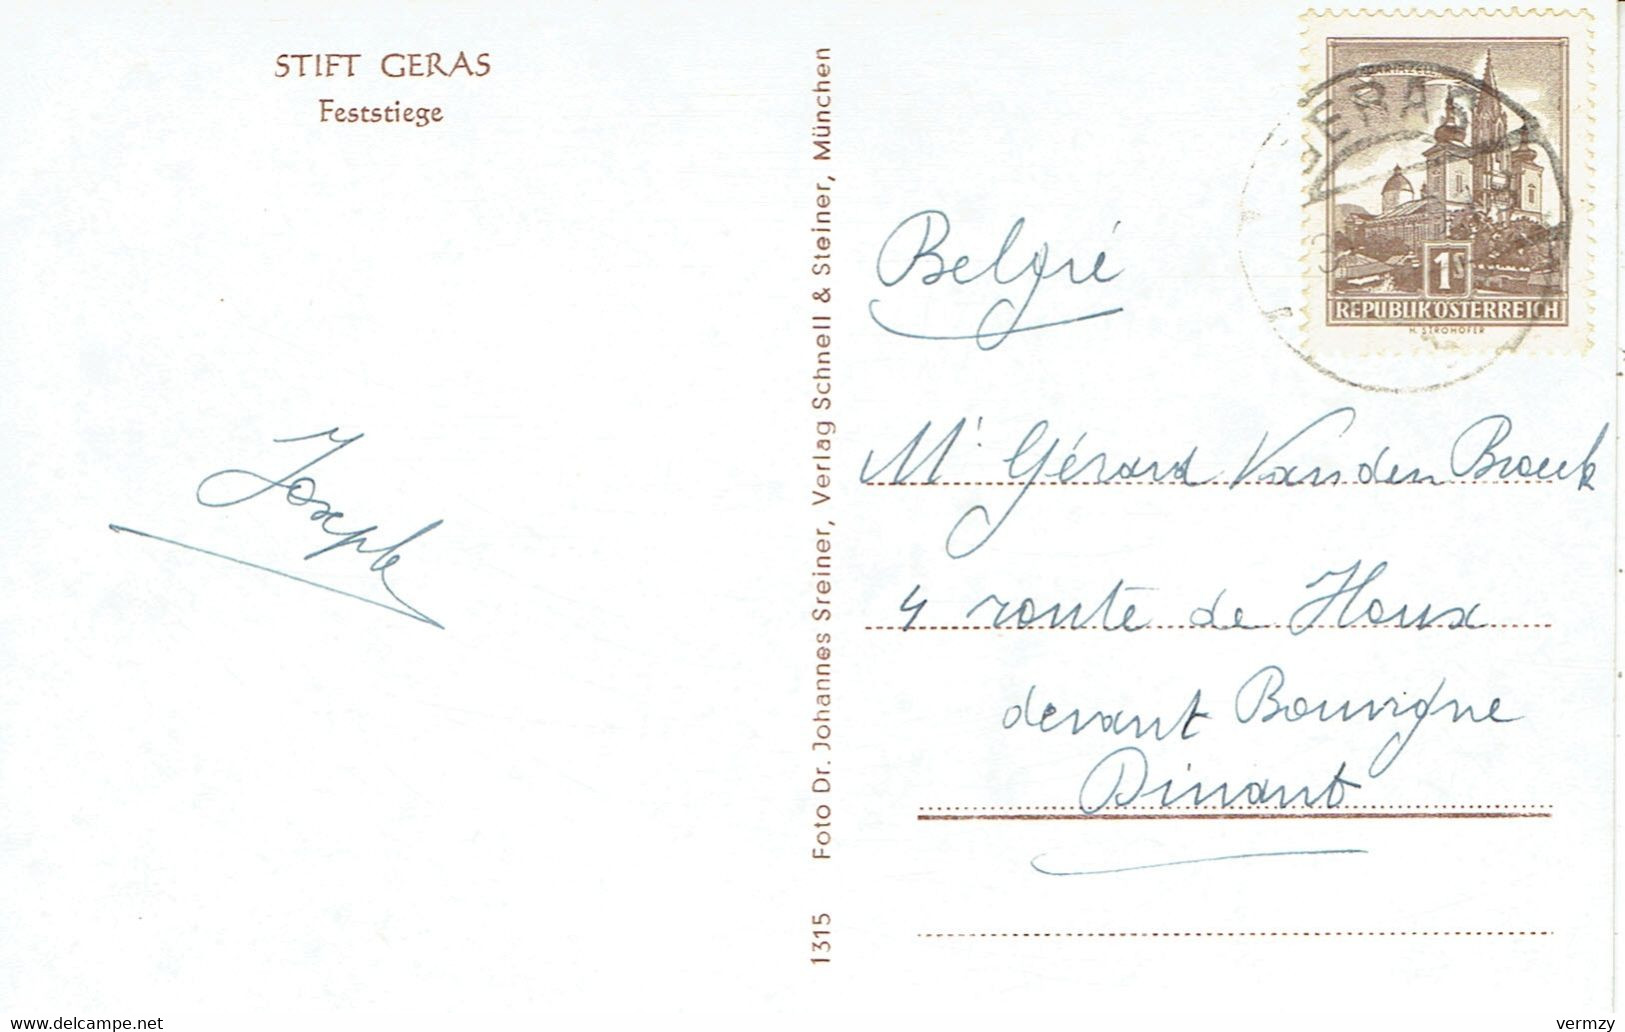 STIFT GERAS
Feststiege
Joseph
1315 Foto Dr. Johannes Sreiner, Verlag Schnell & Steiner, München
MARIAZELL
GERAS
1S
REPUBLIK ÖSTERREICH
H. STROHOFER
Belgié
Mr Gérard Vanden Broeck
4 route de Houx
devant Bouvigne
Dinant
delcampe.net
vermzy